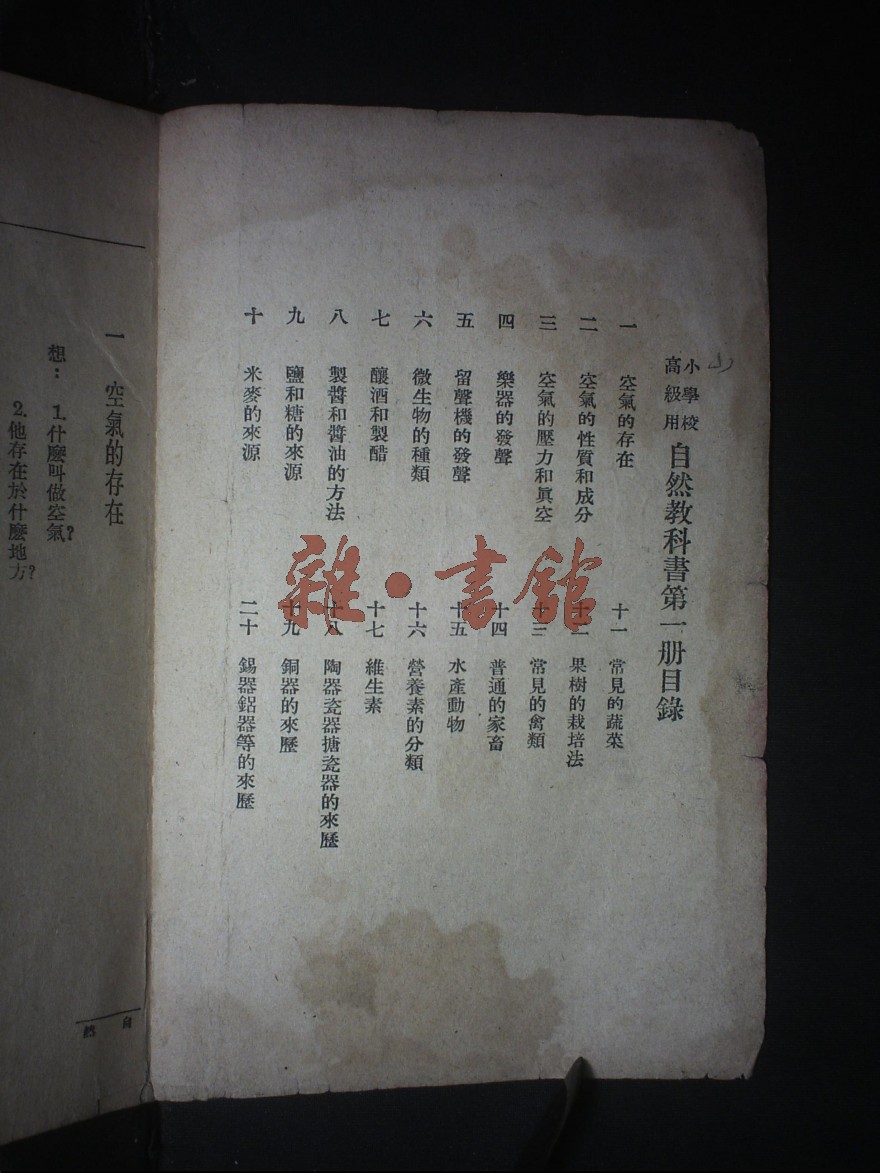 小學校高級用 自然教科書第一册目錄
一 空氣的存在
二 空氣的性質和成分
三 空氣的壓力和眞空
四 樂器的發聲
五 留聲機的發聲
六 微生物的種類
七 釀酒和製醋
八 製醬和醬油的方法
九 鹽和糖的來源
十 米麥的來源
十一 常見的蔬菜
十二 果樹的栽培法
十三 常見的禽類
十四 普通的家畜
十五 水產動物
十六 營養素的分類
十七 維生素
十八 陶器瓷器搪瓷器的來歷
十九 銅器的來歷
二十 錫器鋁器等的來歷
雜·書館
一 空氣的存在
想：1.什麼叫做空氣？
2.他存在於什麼地方？
自然